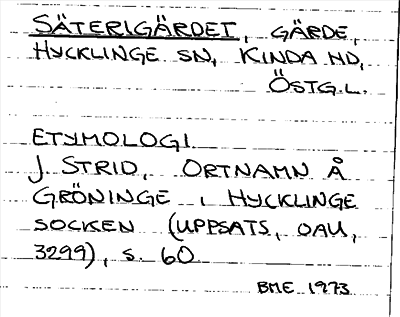 SÄTERIGÄRDET, GÄRDE,
HYCKLINGE SN, KINDA HD,
ÖSTG.L.
ETYMOLOGI
J. STRID, ORTNAMN Å
GRÖNINGE I HYCKLINGE
SOCKEN (UPPSATS, OAU,
3299), S. 60
BME 1973